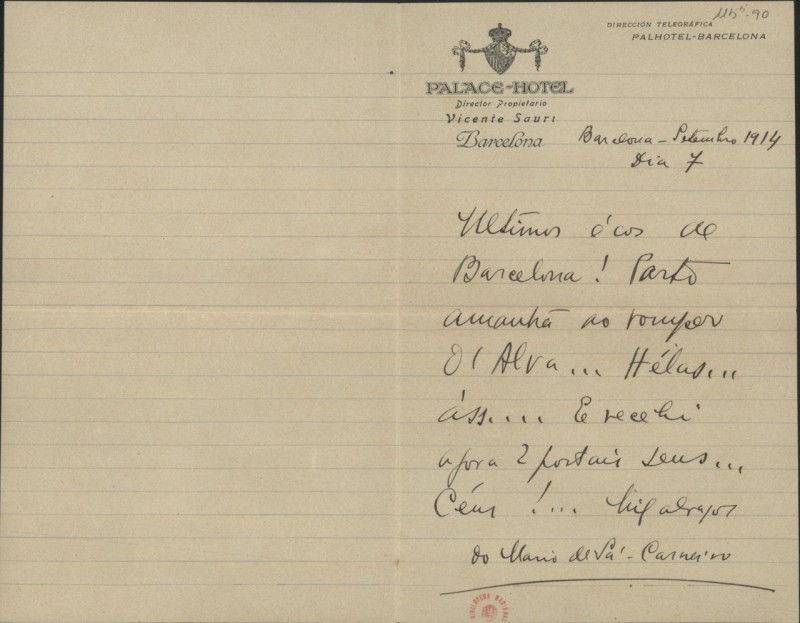 115⁵-90
DIRECCIÓN TELEGRÁFICA
PALHOTEL-BARCELONA
PALACE-HOTEL
Director Propietario
Vicente Sauri
Barcelona
Barcelona - Setembro 1914
Dia 7
Ultimos écos de
Barcelona! Parto
amanhã ao romper
D'Alva... Hélas...
áss.... E recebi
agora 2 postais seus...
Céus!... Mil abraços
do Mario de Sá-Carneiro
BIBLIOTECA NACIONAL